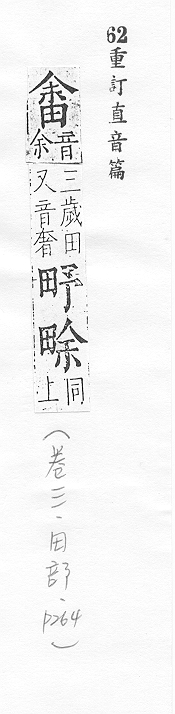 62重訂直音篇
畬音余三歲田又音奢畭同上
(卷三·田部·p264)